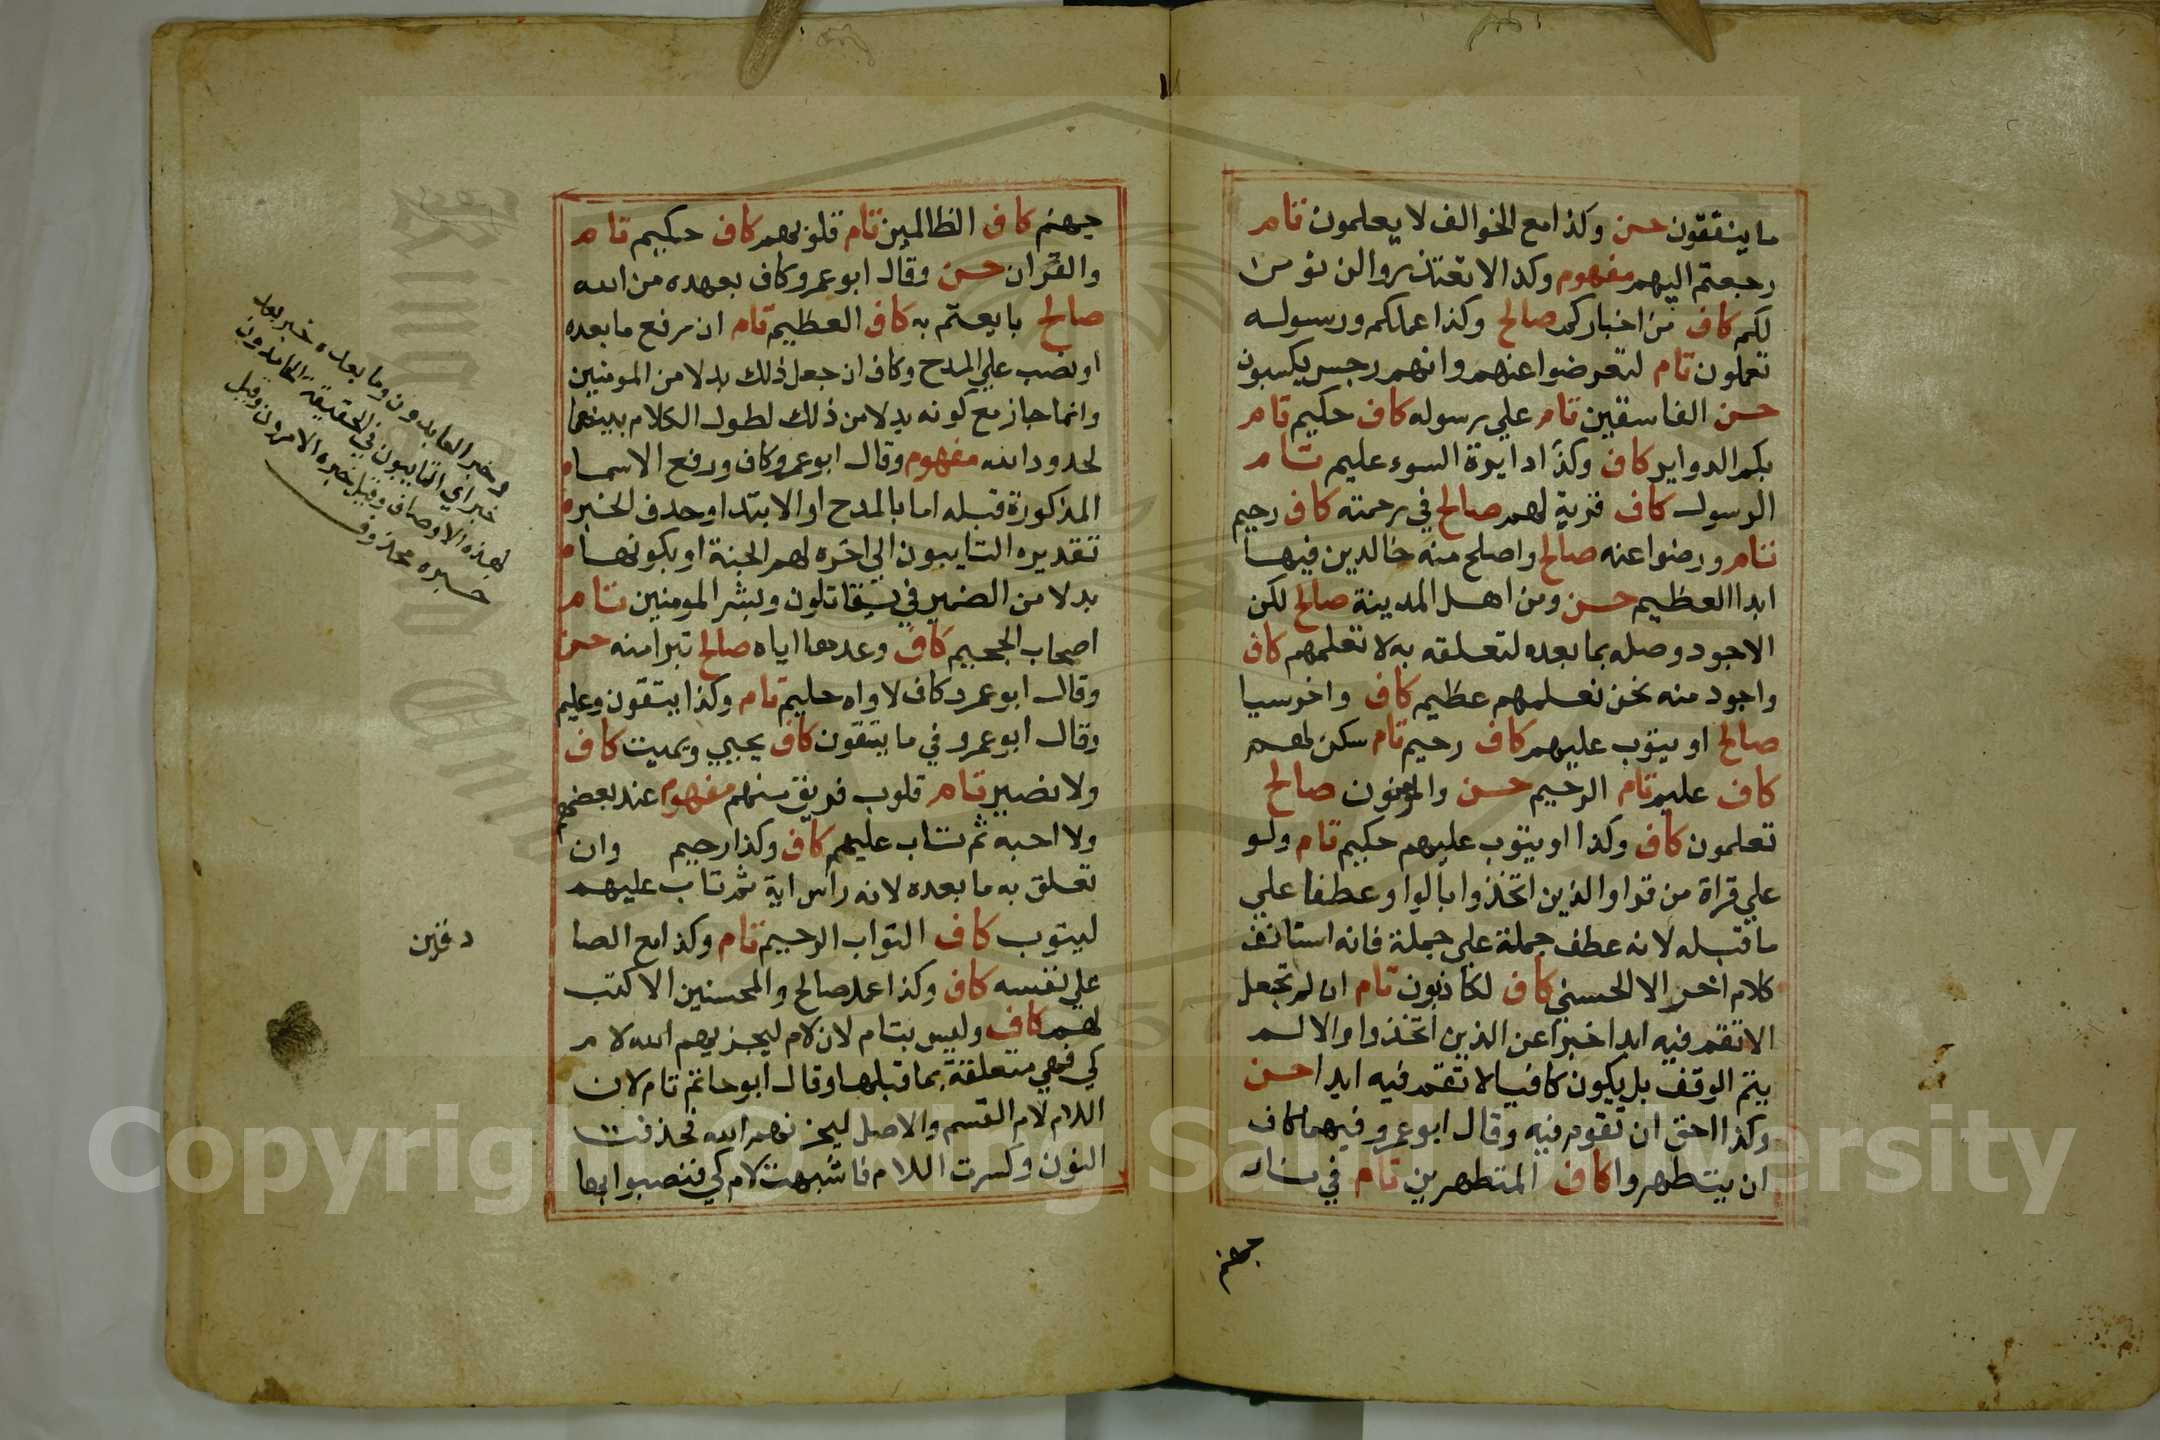 ما ينفقون حسن وكذا مع الخوالف لا يعلمون تام
رجعتم اليهم مفهوم وكذا لا تعتذروا لن نؤمن
لكم كاف من اخباركم صالح وكذا عملكم ورسوله
تعملون تام لتعرضوا عنهم وانهم رجس يكسبون
حسن الفاسقين تام علي رسوله كاف حكيم تام
بكم الدواير كاف وكذا دايرة السوء عليم تام
الرسول كاف قربة لهم صالح في رحمته كاف رحيم
تام ورضوا عنه صالح واصلح منه خالدين فيها
ابدا العظيم حسن ومن اهل المدينة صالح لكن
الاجود وصله بما بعده لتعلقه به لا تعلمهم كاف
واجود منه نحن نعلمهم عظيم كاف واخرسيا
صالح او يتوب عليهم كاف رحيم تام سكن لهم
كاف عليم تام الرحيم حسن والمؤمنون صالح
تعلمون كاف وكذا او يتوب عليهم حكيم تام ولو
علي قراة من قرا والذين اتخذوا بالواو عطفا علي
ما قبله لانه عطف جملة علي جملة فانه استانف
كلام اخر الا الحسني كاف لكاذبون تام ان لم تجعل
لا تقم فيه ابدا خبرا عن الذين اتخذوا والا لم
يتم الوقف بل يكون كافيا لا تقم فيه ابدا حسن
وكذا احق ان تقوم فيه وقال ابو عمرو فيهما كاف
ان يتطهروا كاف المتطهرين تام في نار
جهنم
جهنم كاف الظالمين تام قلوبهم كاف حكيم تام
والقران حسن وقال ابو عمرو كاف بعهده من الله
صالح بايعتم به كاف العظيم تام ان رفع ما بعده
او نصب علي المدح وكاف ان جعل ذلك بدلا من المومنين
وانما جاز مع كونه بدلا من ذلك لطول الكلام بينهما
لحدود الله مفهوم وقال ابو عمرو كاف ورفع الاسماء
المذكورة قبله اما بالمدح او الابتدا وحذف الخبر
تقديره التايبون الي اخره لهم الجنة او بكونها
بدلا من الضمير في يقاتلون وبشر المومنين تام
اصحاب الجحيم كاف وعدها اياه صالح تبرا منه حسن
وقال ابو عمرو كاف لاواه حليم تام وكذا يتقون وعليم
وقال ابو عمرو في ما يتقون كاف يحيي ويميت كاف
ولا نصير تام قلوب فريق منهم مفهوم عند بعضهم
ولا احبه ثم تاب عليهم كاف وكذا رحيم وان
تعلق به ما بعده لانه راس اية ثم تاب عليهم
ليتوب كاف التواب الرحيم تام وكذا مع الصا
دقين
علي نفسه كاف وكذا عمل صالح والمحسنين الا كتب
لهم كاف وليس بتام لان لام ليجزيهم الله لام
كي فهي متعلقة بما قبلها وقال ابو حاتم تام لان
اللام لام القسم والاصل ليجزينهم الله فحذفت
النون وكسرت اللام فاشبهت لام كي فنصبوا بها
وخبر العابدون وما بعده خبر بعد
خبر اي التايبون في الحقيقة الجامعون
لهذه الاوصاف وقيل خبره الامرون وقيل
خبره محذوف
Copyright © King Saud University